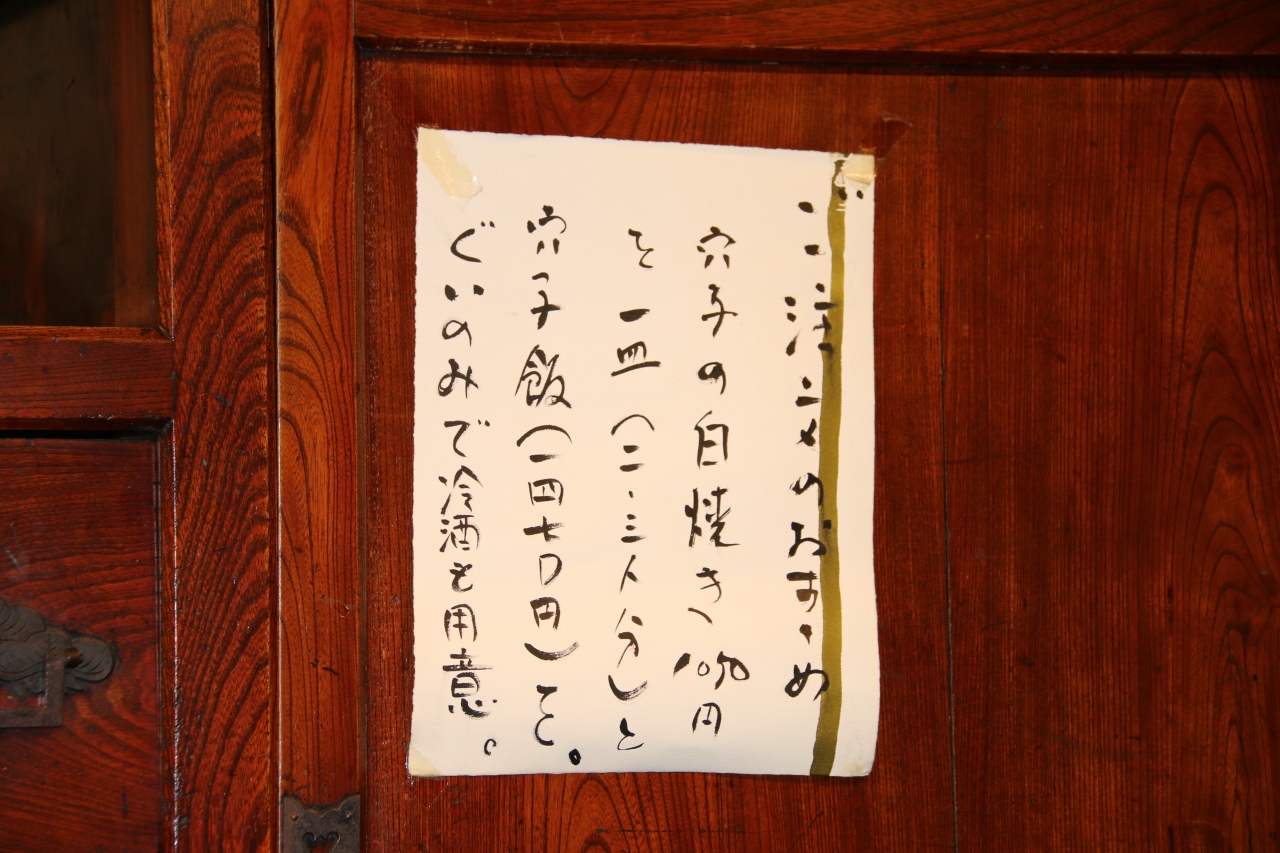 ご注文のおすゝめ
穴子の白焼き、1050円
を一皿(二・三人分)と
穴子飯(一四七〇円)を。
ぐいのみで冷酒も用意。